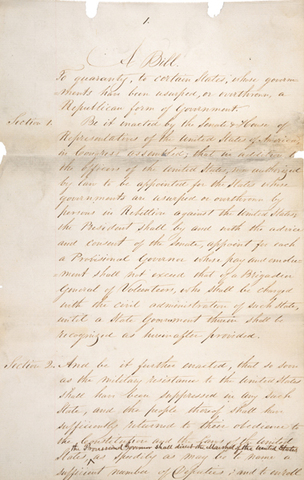 1.
A Bill
To guaranty, to certain States, whose govern
ments have been usurped, or overthrown, a
Republican form of Government
Section 1. Be it enacted by the Senate & House of
Representatives of the United States of America
in Congress assembled, that in addition to
the officers of the United States, now authorized
by law to be appointed for the States whose
governments are usurped or overthrown by
persons in Rebellion against the United States,
the President shall by and with the advice
and consent of the Senate, appoint for each
a Provisional Governor whose pay and emolu-
ment shall not exceed that of a Brigadier
General of Volunteers, who shall be charged
with the civil administration of such State,
until a State Government therein shall be
recognized as hereinafter provided.
Section 2. And be it further enacted, that so soon
as the military resistance to the United States
shall have been suppressed in any such
State, and the people thereof shall have
sufficiently returned to their obedience to
the Constitution and the laws of the United
the Provisional Governor shall direct the Marshal of the United States
States, as speedily as may be to name a
sufficient number of Deputies; and to enroll